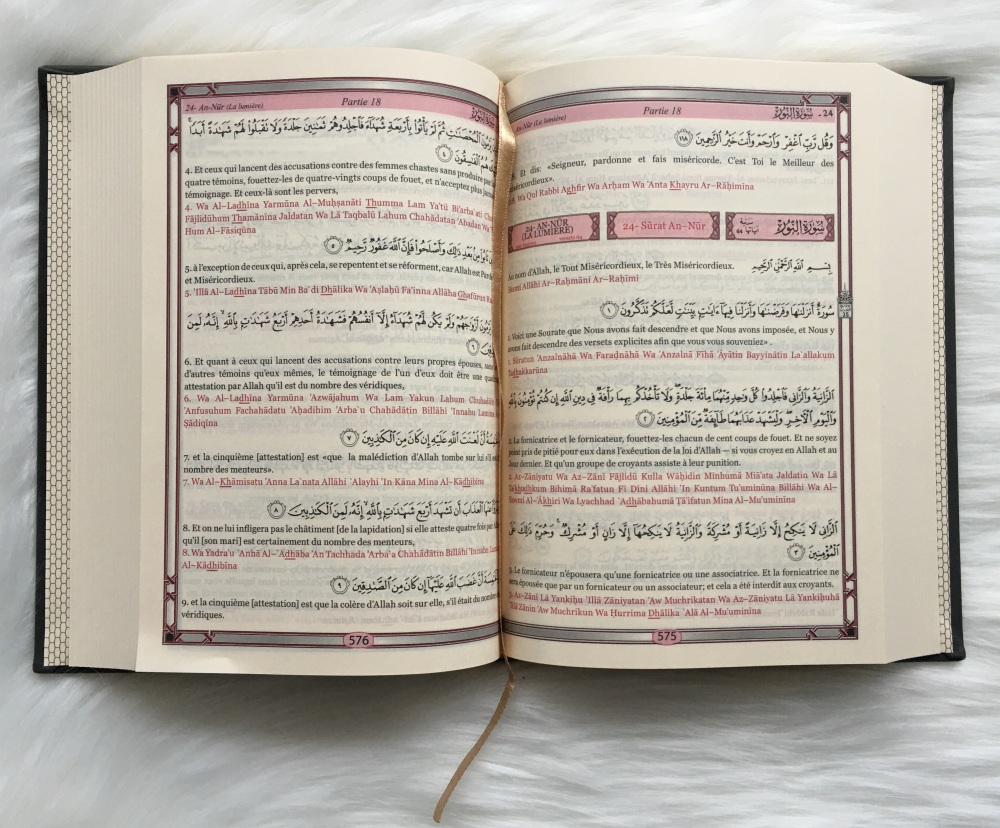 Partie 18
24 - سُورَةُ النُّورِ
وَقُل رَّبِّ ٱغْفِرْ وَٱرْحَمْ وَأَنتَ خَيْرُ ٱلرَّٰحِمِينَ ١١٨
Et dis: «Seigneur, pardonne et fais miséricorde. C'est Toi le Meilleur des
Wa Qul Rabbi Aghfir Wa Arĥam Wa 'Anta Khayru Ar–Rāĥimīna
24- AN-NŪR
(LA LUMIÈRE)
24- Sūrat An–Nūr
سُورَةُ النُّورِ
Au nom d'Allah, le Tout Miséricordieux, le Très Miséricordieux. بِسْمِ ٱللَّهِ ٱلرَّحْمَٰنِ ٱلرَّحِيمِ
Bismi Allāhi Ar–Raĥmāni Ar–Raĥīmi
سُورَةٌ أَنزَلْنَٰهَا وَفَرَضْنَٰهَا وَأَنزَلْنَا فِيهَآ ءَايَٰتٍۭ بَيِّنَٰتٍ لَّعَلَّكُمْ تَذَكَّرُونَ ١
1. Voici une Sourate que Nous avons fait descendre et que Nous avons imposée, et Nous y
avons fait descendre des versets explicites afin que vous vous souveniez» .
1. Sūratun 'Anzalnāhā Wa Farađnāhā Wa 'Anzalnā Fīhā 'Āyātin Bayyinātin La`allakum
Tadhakkarūna
ٱلزَّانِيَةُ وَٱلزَّانِى فَٱجْلِدُوا۟ كُلَّ وَٰحِدٍ مِّنْهُمَا مِا۟ئَةَ جَلْدَةٍ ۖ وَلَا تَأْخُذْكُم بِهِمَا رَأْفَةٌ فِى دِينِ ٱللَّهِ إِن كُنتُمْ تُؤْمِنُونَ بِٱللَّهِ
وَٱلْيَوْمِ ٱلْـَٔاخِرِ ۖ وَلْيَشْهَدْ عَذَابَهُمَا طَآئِفَةٌ مِّنَ ٱلْمُؤْمِنِينَ ٢
2. La fornicatrice et le fornicateur, fouettez-les chacun de cent coups de fouet. Et ne soyez
point pris de pitié pour eux dans l'exécution de la loi d'Allah — si vous croyez en Allah et au
Jour dernier. Et qu'un groupe de croyants assiste à leur punition.
2. Az–Zāniyatu Wa Az–Zānī Fājlidū Kulla Wāĥidin Minhumā Miā'ata Jaldatin Wa Lā
Ta'khudhkum Bihimā Ra'fatun Fī Dīni Allāhi 'In Kuntum Tu'uminūna Billāhi Wa Al–
Yawmi Al–'Ākhiri Wa Lyachhad `Adhābahumā Ţā'ifatun Mina Al–Mu'uminīna
ٱلزَّانِى لَا يَنكِحُ إِلَّا زَانِيَةً أَوْ مُشْرِكَةً وَٱلزَّانِيَةُ لَا يَنكِحُهَآ إِلَّا زَانٍ أَوْ مُشْرِكٌ ۚ وَحُرِّمَ ذَٰلِكَ عَلَى
ٱلْمُؤْمِنِينَ ٣
3. Le fornicateur n'épousera qu'une fornicatrice ou une associatrice. Et la fornicatrice ne
sera épousée que par un fornicateur ou un associateur; et cela a été interdit aux croyants.
3. Az–Zānī Lā Yankiĥu 'Illā Zāniyatan 'Aw Muchrikatan Wa Az–Zāniyatu Lā Yankiĥuhā
'Illā Zānin 'Aw Muchrikun Wa Ĥurrima Dhālika `Alá Al–Mu'uminīna
575
24- An-Nūr (La lumière)
Partie 18
ٱلْمُحْصَنَٰتِ ثُمَّ لَمْ يَأْتُوا۟ بِأَرْبَعَةِ شُهَدَآءَ فَٱجْلِدُوهُمْ ثَمَٰنِينَ جَلْدَةً وَلَا تَقْبَلُوا۟ لَهُمْ شَهَٰدَةً أَبَدًا ۚ
هُمُ ٱلْفَٰسِقُونَ ٤
4. Et ceux qui lancent des accusations contre des femmes chastes sans produire par
quatre témoins, fouettez-les de quatre-vingts coups de fouet, et n'acceptez plus jamais
témoignage. Et ceux-là sont les pervers,
4. Wa Al–Ladhīna Yarmūna Al–Muĥşanāti Thumma Lam Ya'tū Bi'arba`ati
Fājlidūhum Thamānīna Jaldatan Wa Lā Taqbalū Lahum Chahādatan 'Abadan Wa
Hum Al–Fāsiqūna
مِنۢ بَعْدِ ذَٰلِكَ وَأَصْلَحُوا۟ فَإِنَّ ٱللَّهَ غَفُورٌ رَّحِيمٌ ٥
5. à l'exception de ceux qui, après cela, se repentent et se réforment, car Allah est
et Miséricordieux.
5. 'Illā Al–Ladhīna Tābū Min Ba`di Dhālika Wa 'Aşlaĥū Fa'inna Allāha Ghafūrun
أَزْوَٰجَهُمْ وَلَمْ يَكُن لَّهُمْ شُهَدَآءُ إِلَّآ أَنفُسُهُمْ فَشَهَٰدَةُ أَحَدِهِمْ أَرْبَعُ شَهَٰدَٰتٍۭ بِٱللَّهِ ۙ إِنَّهُۥ لَمِنَ
٦
6. Et quant à ceux qui lancent des accusations contre leurs propres épouses, sans
d'autres témoins qu'eux mêmes, le témoignage de l'un d'eux doit être une
attestation par Allah qu'il est du nombre des véridiques,
6. Wa Al–Ladhīna Yarmūna 'Azwājahum Wa Lam Yakun Lahum
'Anfusuhum Fachahādatu 'Aĥadihim 'Arba`u Chahādātin Billāhi 'Innahu Lamina
Şādiqīna
أَنَّ لَعْنَتَ ٱللَّهِ عَلَيْهِ إِن كَانَ مِنَ ٱلْكَٰذِبِينَ ٧
7. et la cinquième [attestation] est «que la malédiction d'Allah tombe sur lui s'il
nombre des menteurs».
7. Wa Al–Khāmisatu 'Anna La`nata Allāhi `Alayhi 'In Kāna Mina Al–Kādhibīna
ٱلْعَذَابَ أَن تَشْهَدَ أَرْبَعَ شَهَٰدَٰتٍۭ بِٱللَّهِ ۙ إِنَّهُۥ لَمِنَ ٱلْكَٰذِبِينَ ٨
8. Et on ne lui infligera pas le châtiment [de la lapidation] si elle atteste quatre fois par
qu'il [son mari] est certainement du nombre des menteurs,
8. Wa Yadra'u `Anhā Al–`Adhāba 'An Tachhada 'Arba`a Chahādātin Billāhi 'Innahu
Al–Kādhibīna
أَنَّ غَضَبَ ٱللَّهِ عَلَيْهَآ إِن كَانَ مِنَ ٱلصَّٰدِقِينَ ٩
9. et la cinquième [attestation] est que la colère d'Allah soit sur elle, s'il était du nombre
véridiques.
576